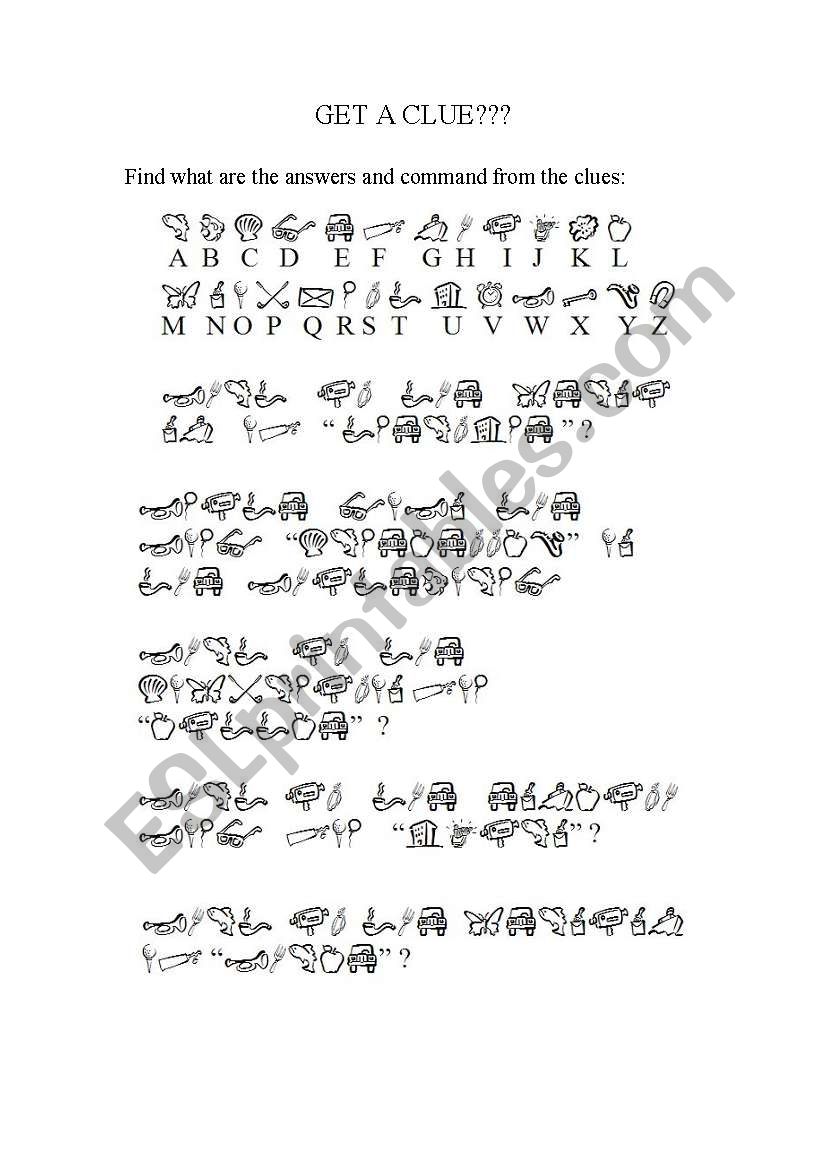 GET A CLUE???
Find what are the answers and command from the clues:
A B C D E F G H I J K L
M N O P Q R S T U V W X Y Z
“ ” ?
“ ”
“ ” ?
“ ” ?
“ ” ?
ESLprintables.com